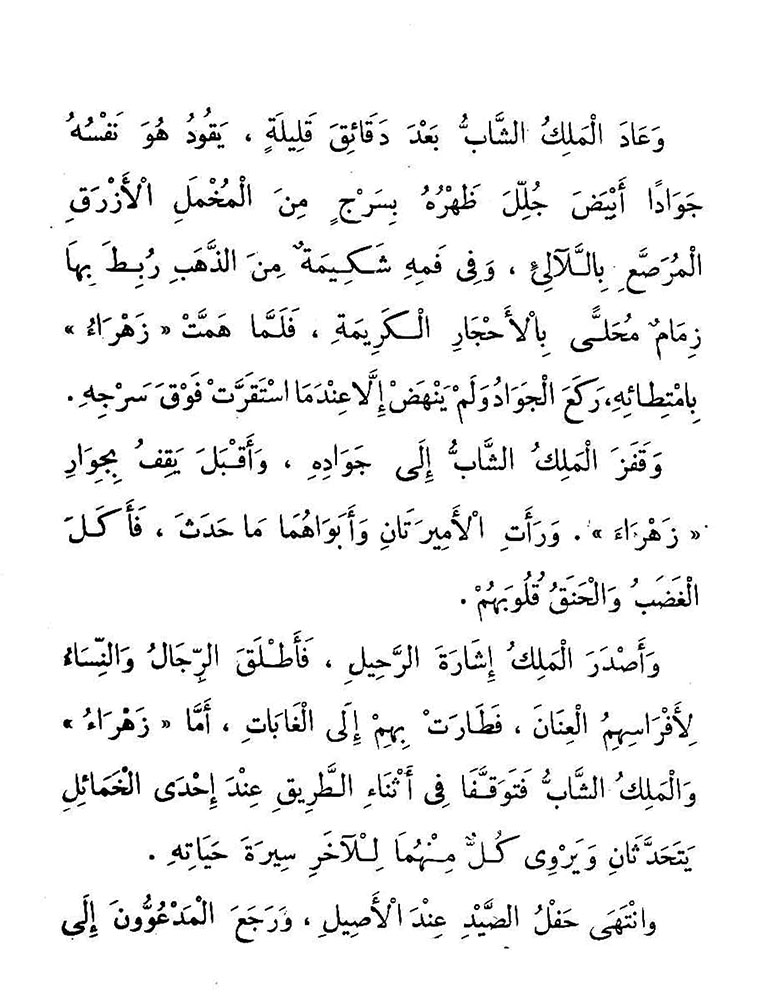 وَعَادَ الْمَلِكُ الشَّابُّ بَعْدَ دَقَائِقَ قَلِيلَةٍ ، يَقُودُ هُوَ نَفْسُهُ
جَوَادًا أَبْيَضَ جُلِّلَ ظَهْرُهُ بِسَرْجٍ مِنَ الْمُخْمَلِ الْأَزْرَقِ
الْمُرَصَّعِ بِاللَّآلِئِ ، وَفِى فَمِهِ شَكِيمَةٌ مِنَ الذَّهَبِ رُبِطَ بِهَا
زِمَامٌ مُحَلًّى بِالْأَحْجَارِ الْكَرِيمَةِ ، فَلَمَّا هَمَّتْ « زَهْرَاءُ »
بِامْتِطَائِهِ، رَكَعَ الْجَوَادُ وَلَمْ يَنْهَضْ إِلَّا عِنْدَمَا اسْتَقَرَّتْ فَوْقَ سَرْجِهِ .
وَقَفَزَ الْمَلِكُ الشَّابُّ إِلَى جَوَادِهِ ، وَأَقْبَلَ يَقِفُ بِجِوَارِ
« زَهْرَاءَ » . وَرَأَتِ الْأَمِيرَتَانِ وَأَبَوَاهُمَا مَا حَدَثَ ، فَأَكَلَ
الْغَضَبُ وَالْحَنَقُ قُلُوبَهُمْ .
وَأَصْدَرَ الْمَلِكُ إِشَارَةَ الرَّحِيلِ ، فَأَطْلَقَ الرِّجَالُ وَالنِّسَاءُ
لِأَفْرَاسِهِمُ الْعِنَانَ ، فَطَارَتْ بِهِمْ إِلَى الْغَابَاتِ ، أَمَّا « زَهْرَاءُ »
وَالْمَلِكُ الشَّابُّ فَتَوَقَّفَا فِى أَثْنَاءِ الطَّرِيقِ عِنْدَ إِحْدَى الْخَمَائِلِ
يَتَحَدَّثَانِ وَيَرْوِى كُلٌّ مِنْهُمَا لِلْآخَرِ سِيرَةَ حَيَاتِهِ .
وانْتَهَى حَفْلُ الصَّيْدِ عِنْدَ الْأَصِيلِ ، وَرَجَعَ الْمَدْعُوُّونَ إِلَى